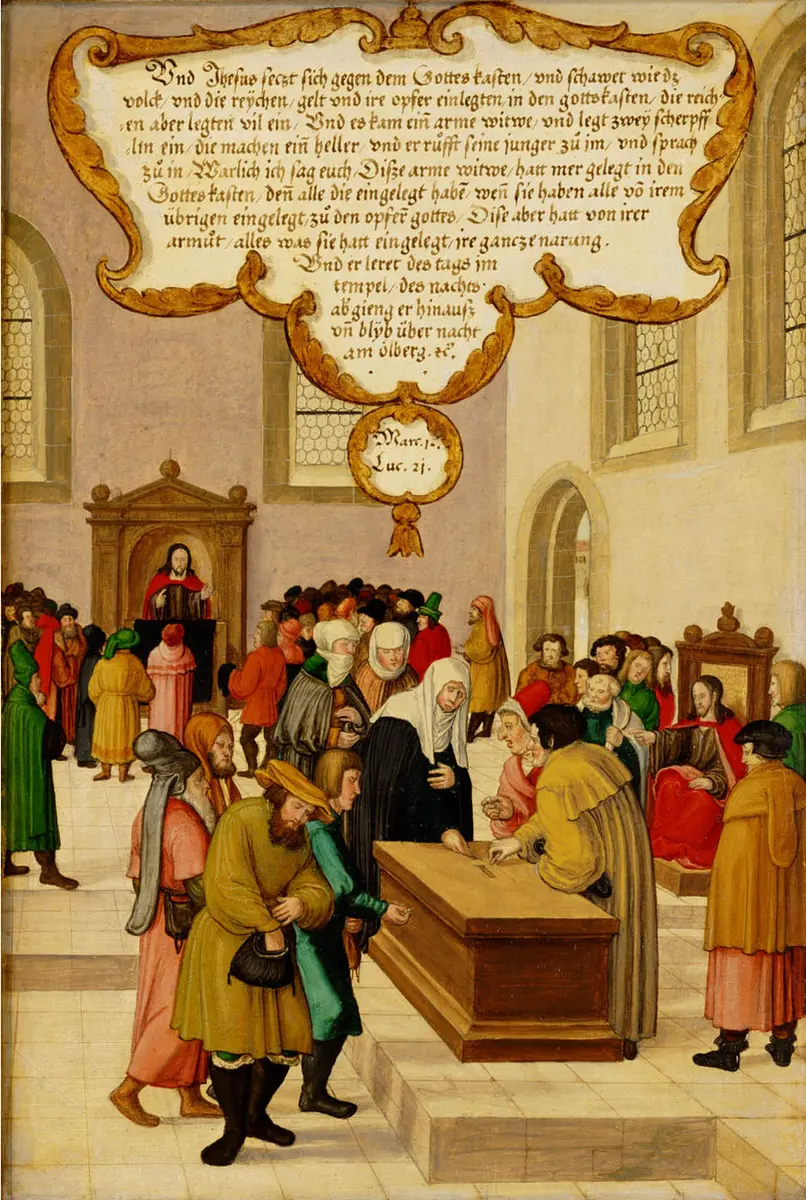 Vnd Jhesus seczt sich gegen dem Gottes kasten/ vnd schawet wie dz
volck/ vnd die reychen/ gelt vnd ire opfer einlegten/ in den gottskasten/ die reich⸗
⸗en aber legten vil ein/ Vnd es kam ein̄ arme witwe/ vnd legt zwey scherpff
⸗lin ein/ die machen ein̄ heller/ vnd er růfft seine junger zů im/ vnd sprach
zů in/ Warlich ich sag euch/ Disze arme witwe/ hatt mer gelegt in den
Gottes kasten/ den̄ alle die eingelegt haben̄/ wen̄ sie haben alle vō irem
übrigen eingelegt/ zů den opfer̄ gottes/ Dise aber hatt von irer
armůt/ alles was sie hatt eingelegt/ ire gancze narung.
Vnd er leret des tags im
tempel/ des nachts
ab gieng er hinausz
vn̄ blyb über nacht
am ölberg. ꝛcͤ.
Marc. 12.
Luc. 21.